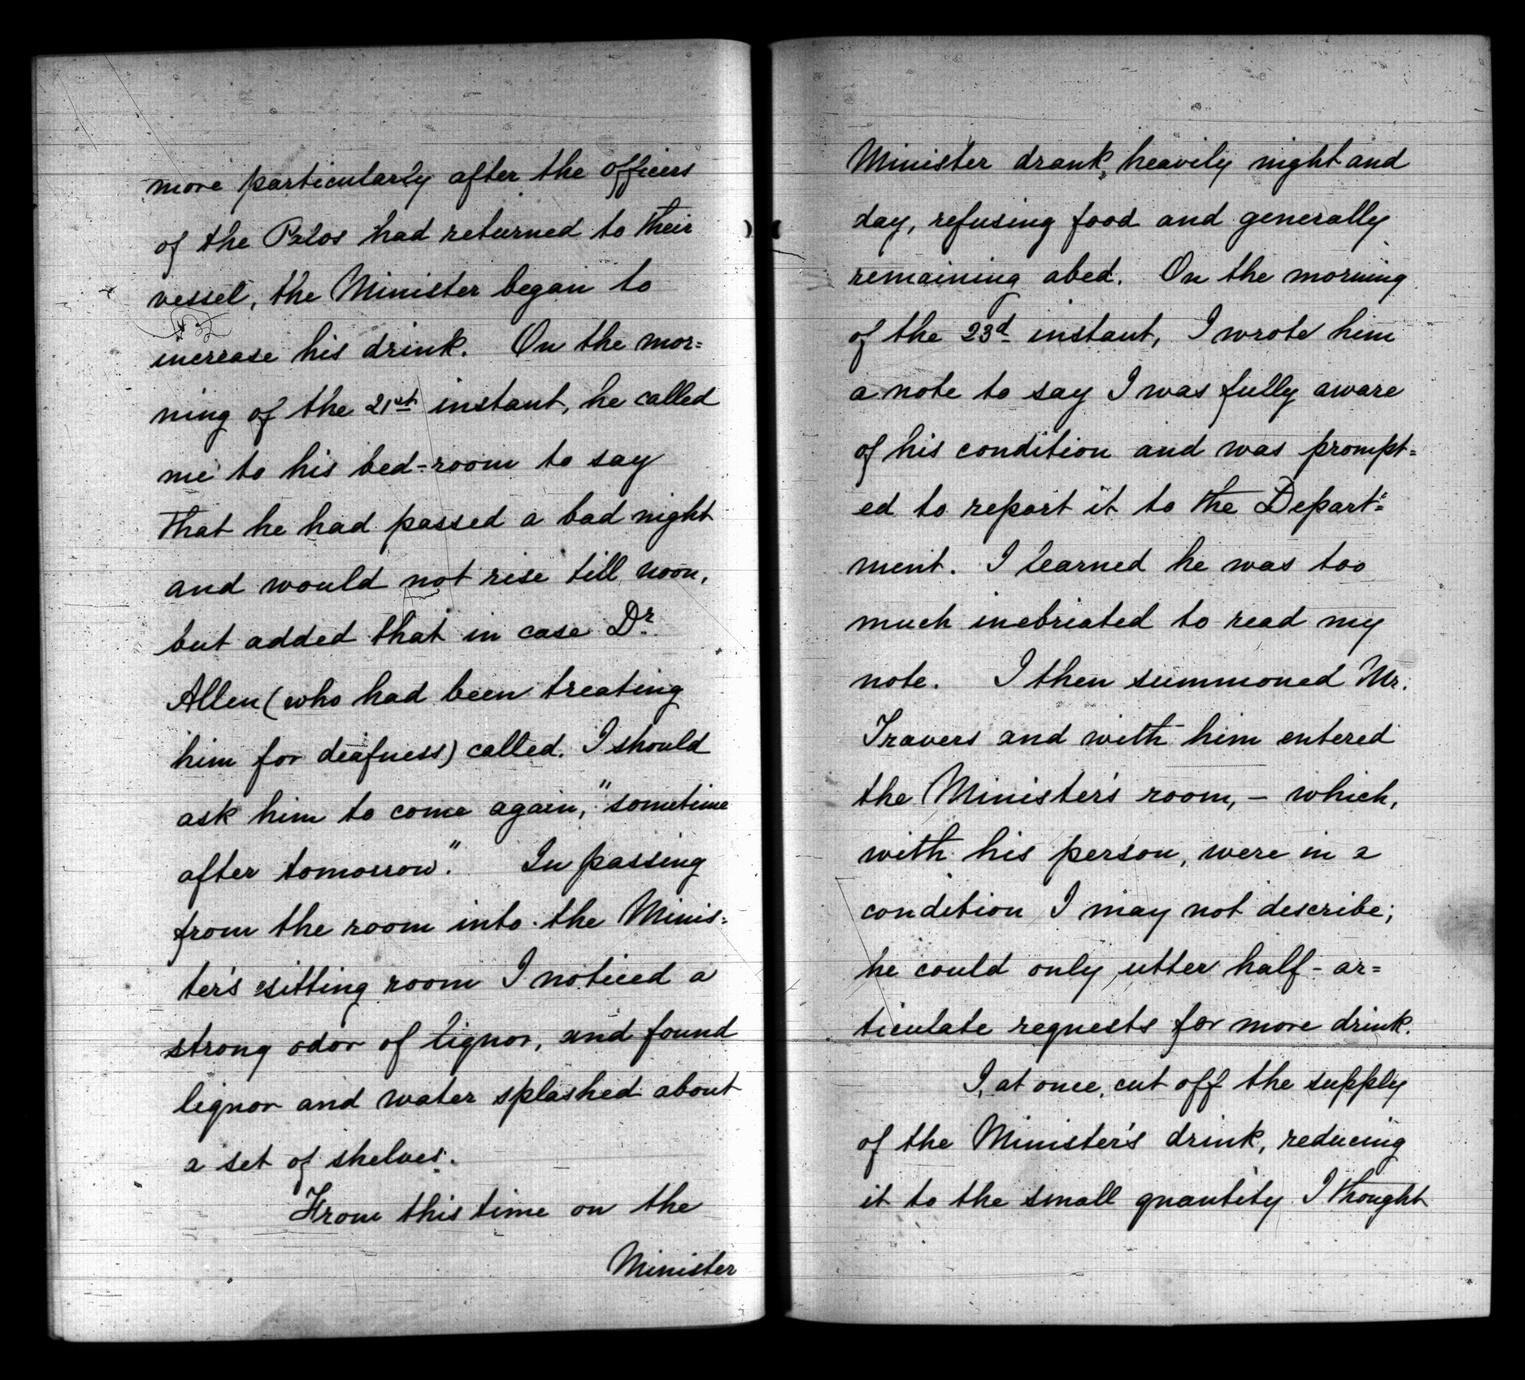 more particularly after the officers
of the Palos had returned to their
vessel, the Minister began to
increase his drink. On the mor=
ning of the 21st instant, he called
me to his bed-room to say
that he had passed a bad night
and would not rise till noon,
but added that in case Dr.
Allen (who had been treating
him for deafness) called, I should
ask him to come again, "sometime
after tomorrow". In passing
from the room into the Minis=
ter's sitting room I noticed a
strong odor of liquor, and found
liquor and water splashed about
a set of shelves.
From this time on the
Minister
Minister drank, heavily night and
day, refusing food and generally
remaining abed. On the morning
of the 23d instant, I wrote him
a note to say I was fully aware
of his condition and was prompt=
ed to report it to the Depart=
ment. I learned he was too
much inebriated to read my
note. I then summoned Mr.
Travers and with him entered
the Minister's room, - which,
with his person, were in a
condition I may not describe;
he could only utter half-ar=
ticulate requests for more drink.
I, at once, cut off the supply
of the Minister's drink, reducing
it to the small quantity I thought